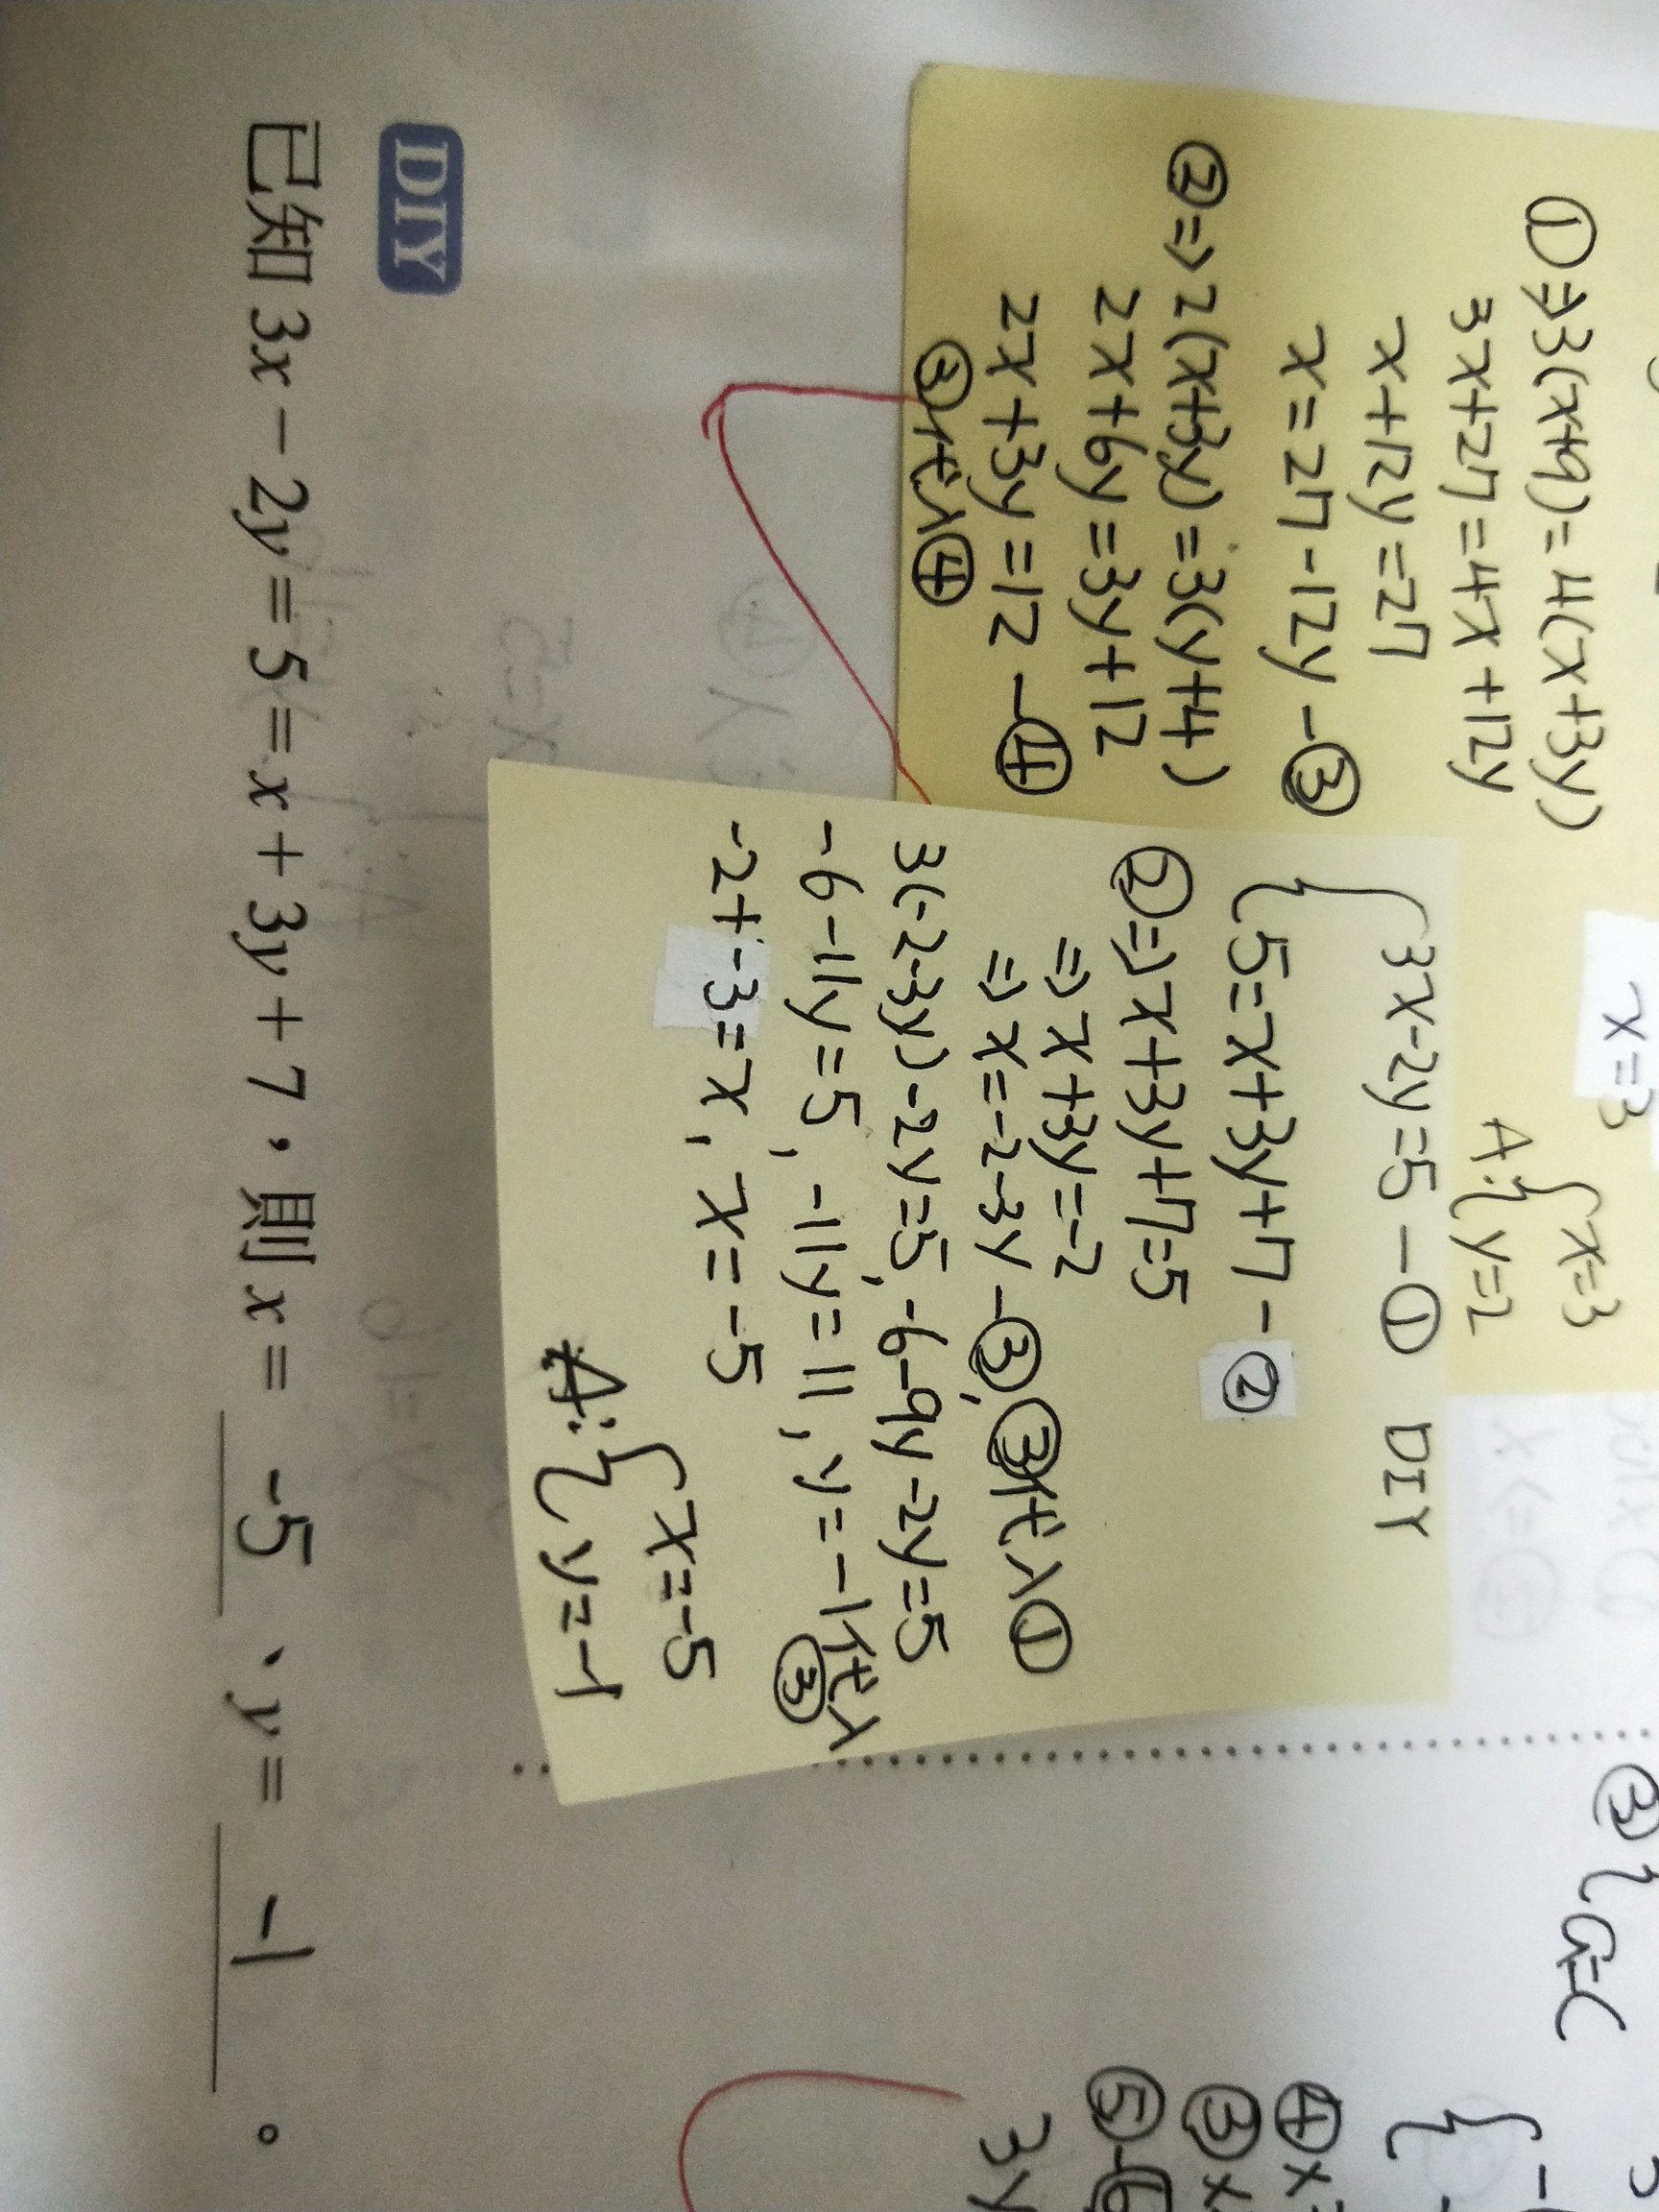 ①⇒3(x+9)=4(x+3y)
3x+27=4x+12y
x+12y=27
x=27-12y -③
②⇒2(x+3y)=3(y+4)
2x+6y=3y+12
2x+3y=12 -④
③代入④
x=3
A:{x=3
y=2
{3x-2y=5 -① DIY
5=x+3y+7 -②
②⇒x+3y+7=5
⇒x+3y=-2
⇒x=-2-3y -③, ③代入①
3(-2-3y)-2y=5, -6-9y-2y=5
-6-11y=5, -11y=11, y=-1代入③
-2+-3=x, x=-5
A:{x=-5
y=-1
DIY
已知 3x-2y=5=x+3y+7，則 x= -5 、y= -1 。
④x
③x
⑤-6
3y